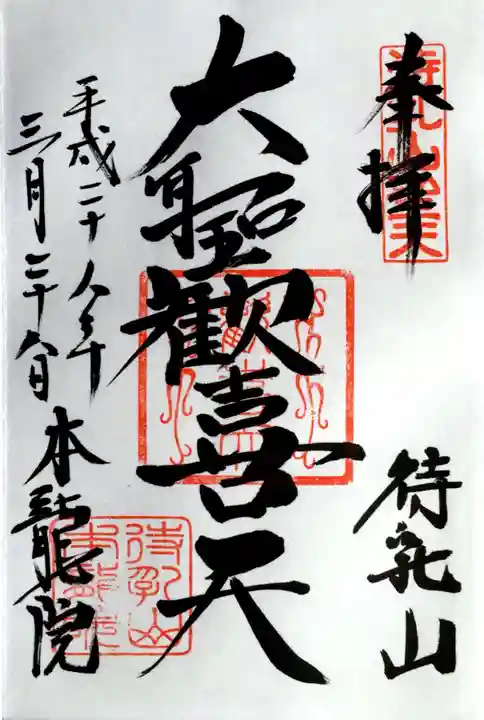 奉拝
待乳山
大聖歓喜天
平成二十八年
三月二十六日
本龍院
待乳山
本龍院